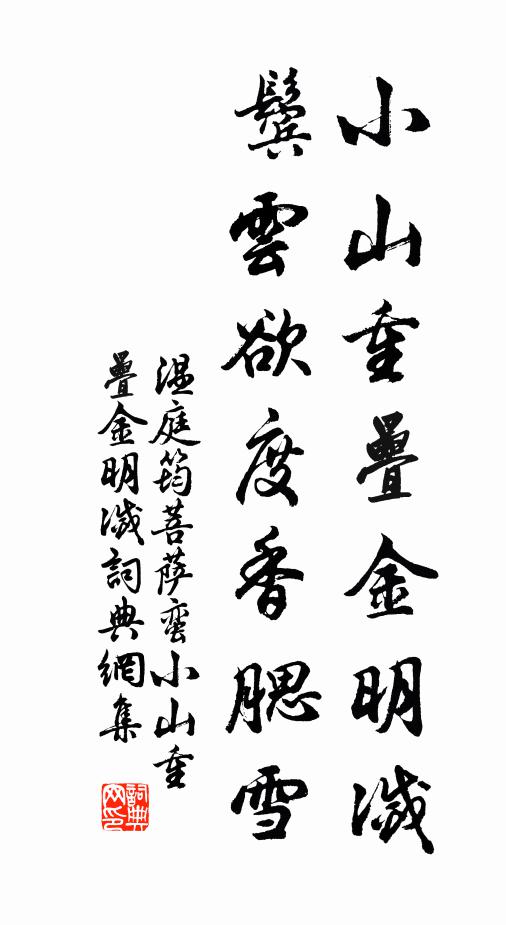 小山重疊金明滅
鬢雲欲度香腮雪
温庭筠菩薩蛮小山重
疊金明滅詞典網集
詞典网印